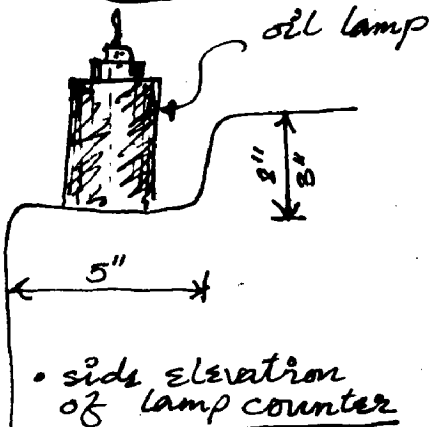 oil lamp
2"
3"
5"
• side elevation
of lamp counter